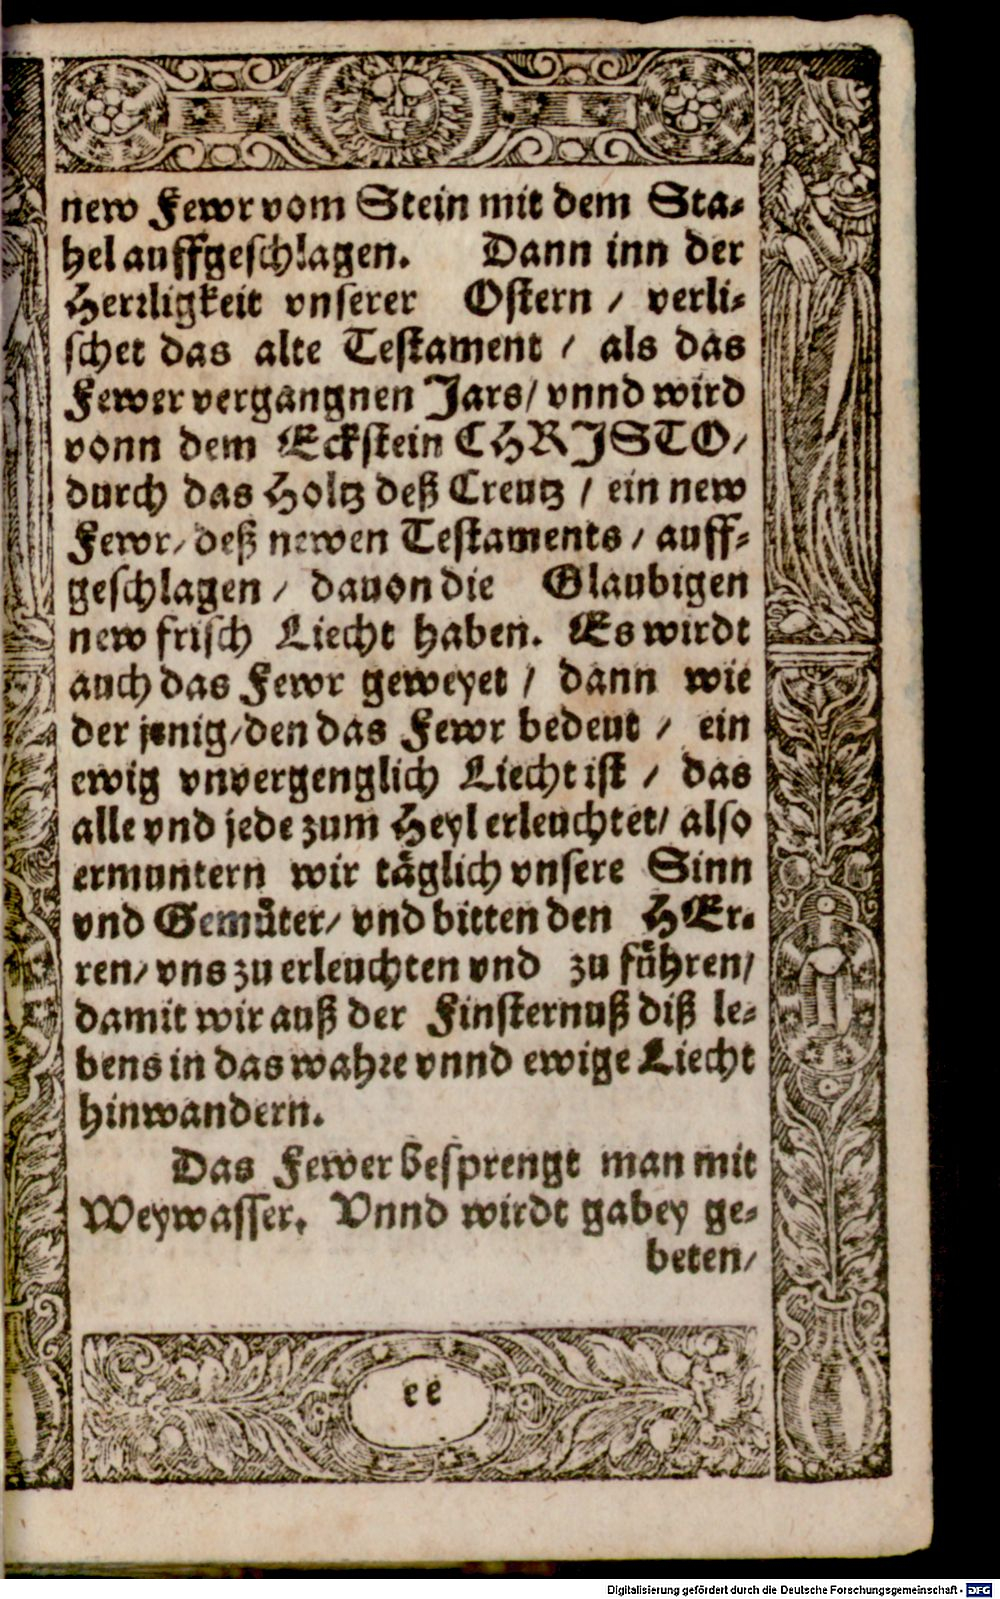 new Fewr vom Stein mit dem Sta-
hel auffgeschlagen. Dann inn der
Herrligkeit vnserer Ostern / verli-
schet das alte Testament / als das
Fewer vergangnen Jars / vnnd wird
vonn dem Eckstein CHRJSTO /
durch das Holtz deß Creutz / ein new
Fewr / deß newen Testaments / auff-
geschlagen / dauon die Glaubigen
new frisch Liecht haben. Es wirdt
auch das Fewr geweyet / dann wie
der jenig / den das Fewr bedeut / ein
ewig vnvergenglich Liecht ist / das
alle vnd jede zum Heyl erleuchtet / also
ermuntern wir täglich vnsere Sinn
vnd Gemüter / vnd bitten den HEr-
ren / vns zu erleuchten vnd zu führen /
damit wir auß der Finsternuß diß le-
bens in das wahre vnnd ewige Liecht
hinwandern.
Das Fewer besprengt man mit
Weywasser. Vnnd wirdt gabey ge-
beten /
ee
Digitalisierung gefördert durch die Deutsche Forschungsgemeinschaft - DFG